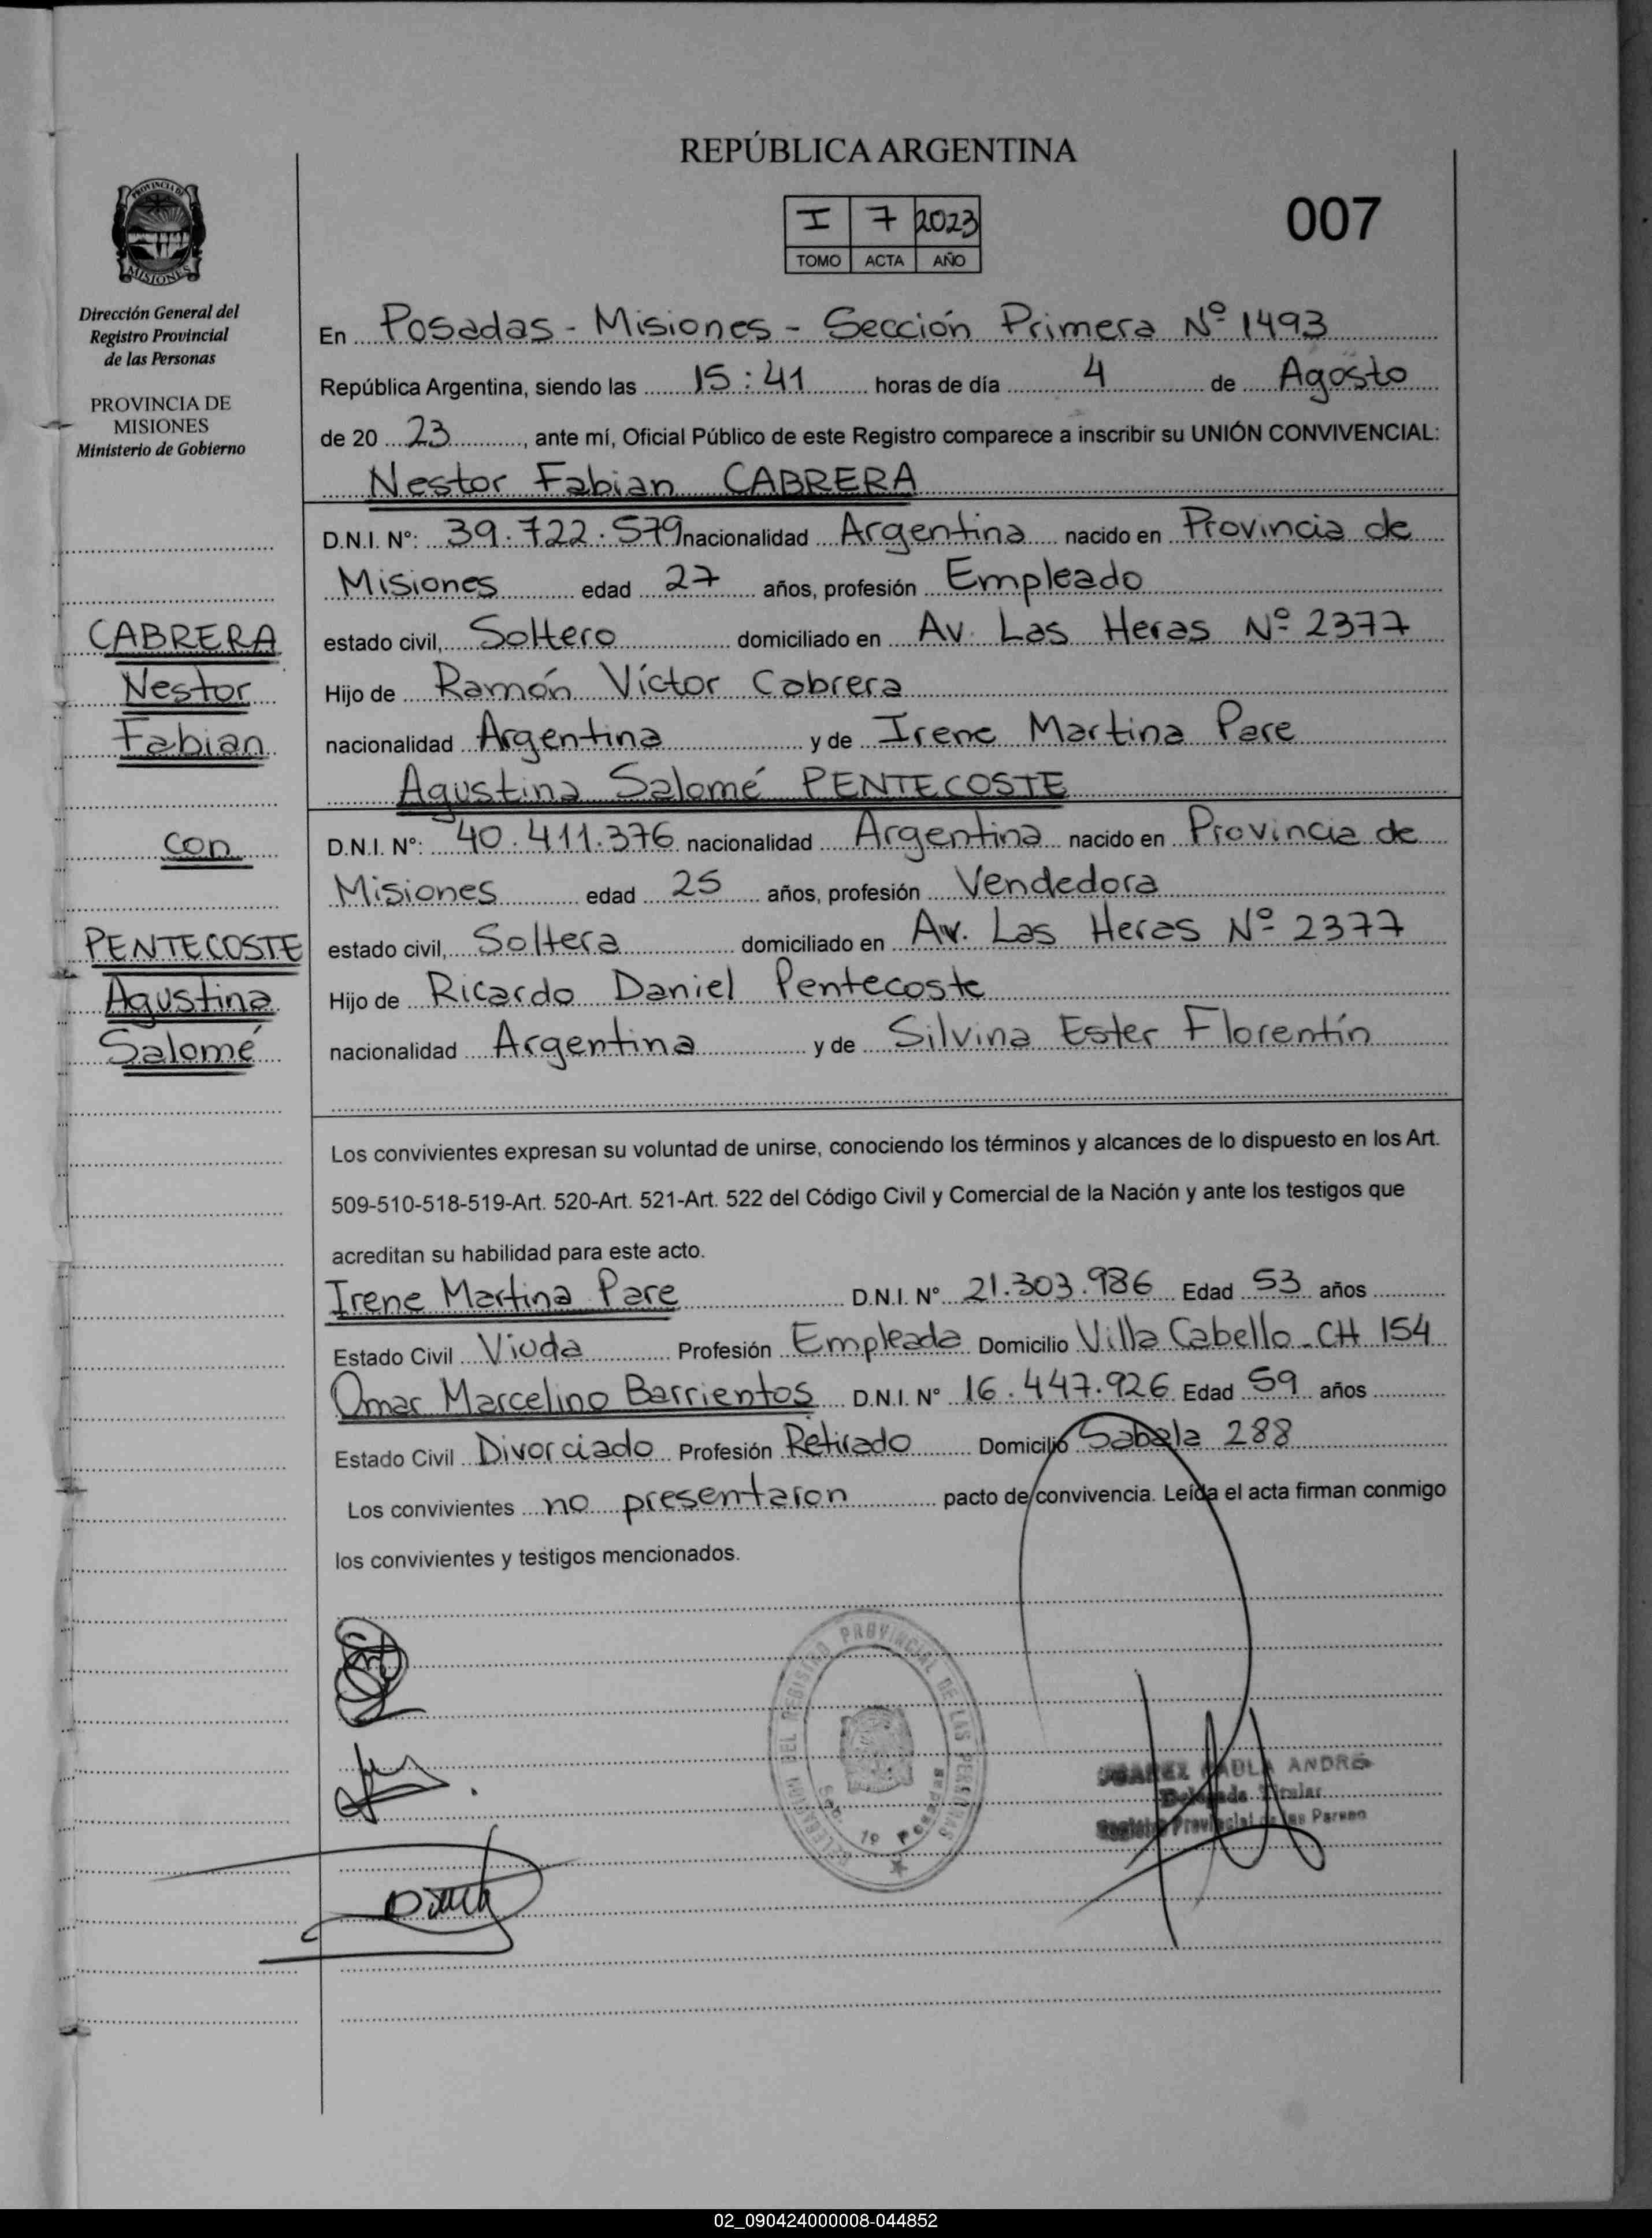 REPÚBLICA ARGENTINA
PROVINCIA DE
MISIONES
I 7 2023
TOMO ACTA AÑO
007
Dirección General del
Registro Provincial
de las Personas
PROVINCIA DE
MISIONES
Ministerio de Gobierno
CABRERA
Nestor
Fabian
con
PENTECOSTE
Agustina
Salomé
En Posadas - Misiones - Sección Primera Nº 1493
República Argentina, siendo las 15:41 horas de día 4 de Agosto
de 20 23, ante mí, Oficial Público de este Registro comparece a inscribir su UNIÓN CONVIVENCIAL:
Nestor Fabian CABRERA
D.N.I. N°: 39.722.579 nacionalidad Argentina nacido en Provincia de
Misiones edad 27 años, profesión Empleado
estado civil, Soltero domiciliado en Av. Las Heras Nº 2377
Hijo de Ramón Víctor Cabrera
nacionalidad Argentina y de Irene Martina Pare
Agustina Salomé PENTECOSTE
D.N.I. N°: 40.411.376 nacionalidad Argentina nacido en Provincia de
Misiones edad 25 años, profesión Vendedora
estado civil, Soltera domiciliado en Av. Las Heras Nº 2377
Hijo de Ricardo Daniel Pentecoste
nacionalidad Argentina y de Silvina Ester Florentín
Los convivientes expresan su voluntad de unirse, conociendo los términos y alcances de lo dispuesto en los Art.
509-510-518-519-Art. 520-Art. 521-Art. 522 del Código Civil y Comercial de la Nación y ante los testigos que
acreditan su habilidad para este acto.
Irene Martina Pare D.N.I. N° 21.303.986 Edad 53 años
Estado Civil Viuda Profesión Empleada Domicilio Villa Cabello - CH 154
Omar Marcelino Barrientos D.N.I. N° 16.447.926 Edad 59 años
Estado Civil Divorciado Profesión Retirado Domicilio Sabala 288
Los convivientes no presentaron pacto de convivencia. Leída el acta firman conmigo
los convivientes y testigos mencionados.
DELEGACION DEL REGISTRO PROVINCIAL DE LAS PERSONAS
ANDRE
Delegada Titular
Registro Provincial de las Person
02_090424000008-044852